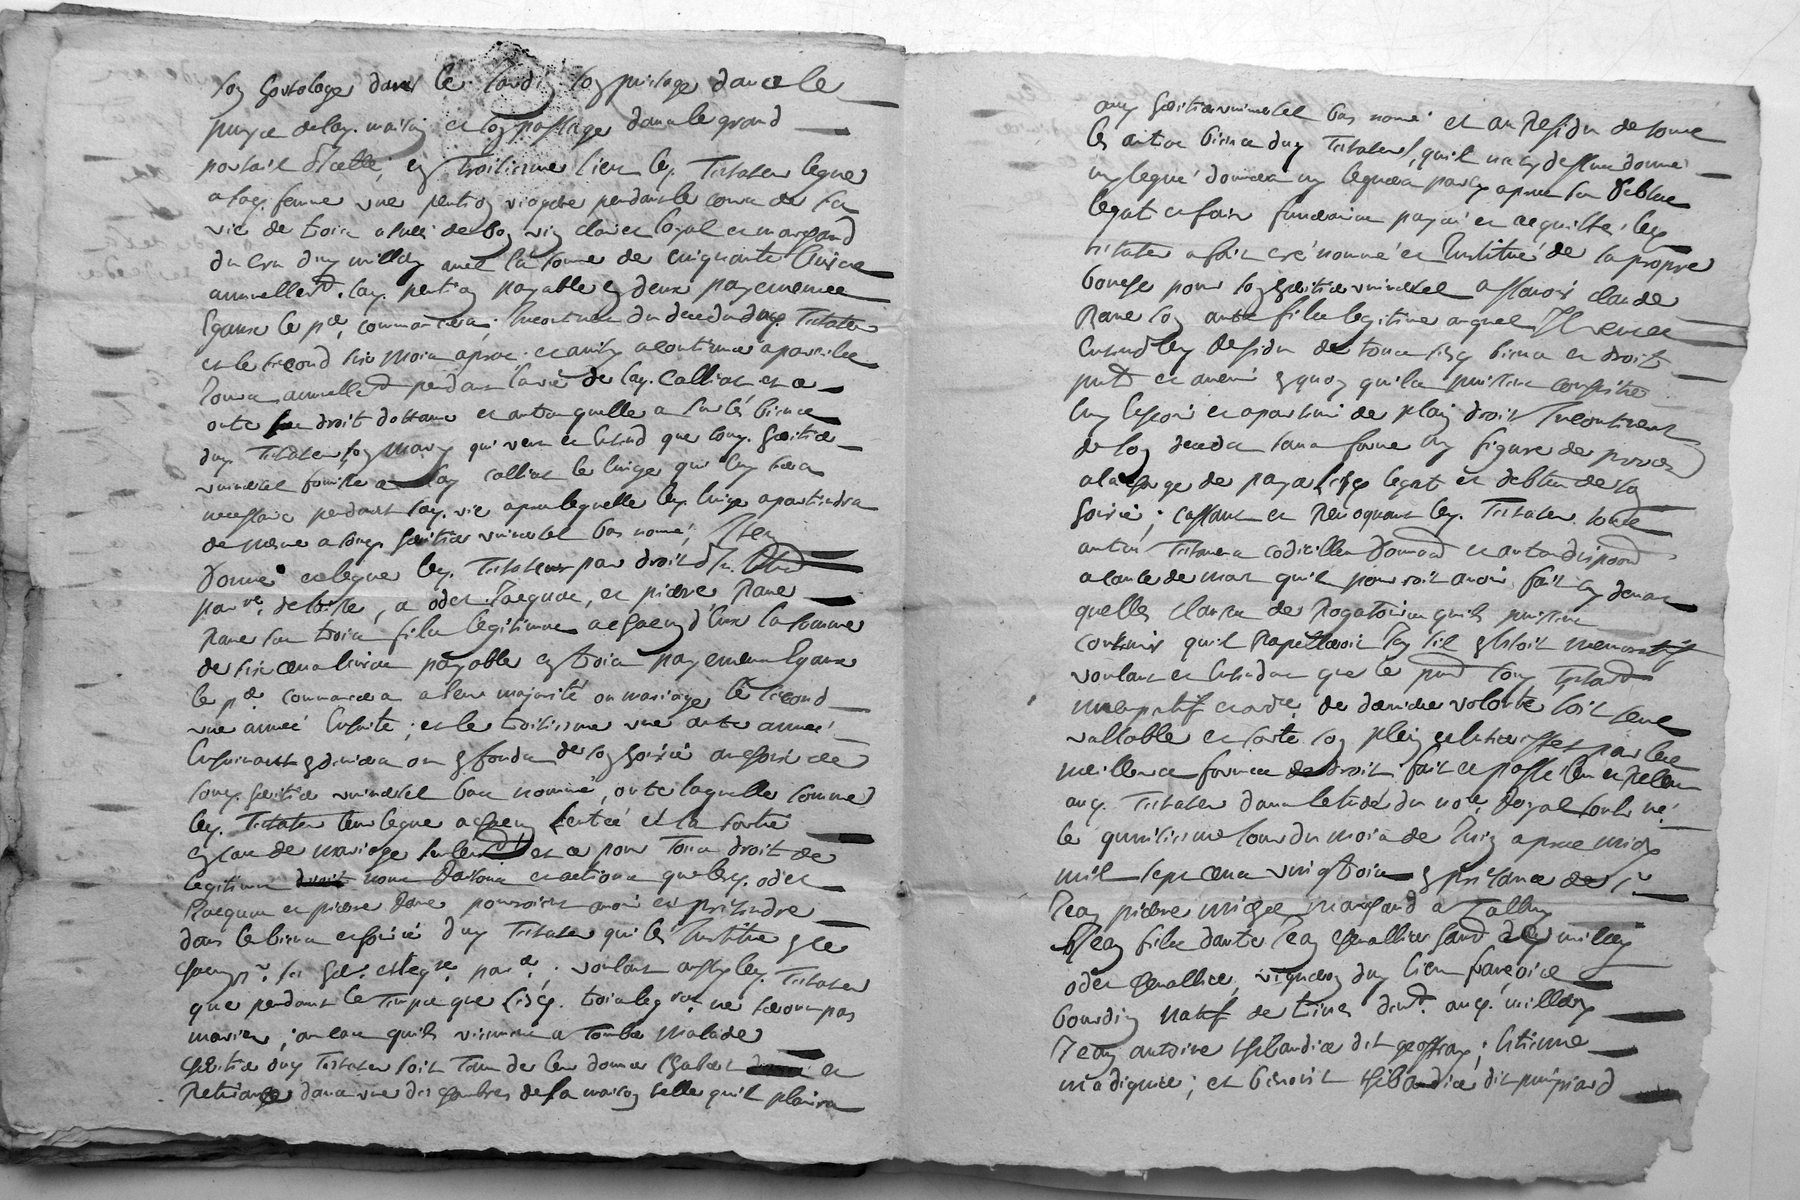 son jardinage dans le jardin son puisage dans le
puys de lad. maison et son passage dans le grand
portail d'icelle, en troisieme lieu led. Testateur legue
a sad. femme une pention viagere pendant le cours de sa
vie de trois asnées de bon vin clairet loyal et marchand
du cru dud millery avec la somme de cinquante livres
annuellemt. lad. pention payable en deux payements
egaux le pr. commencera incontinent du deceds dud. Testateur
et le second six mois apres et ainsy a continuer a pareils
jours annuellemt pendant la vie de lad. Calliat et ce
outre son droit dottaux et autre quelle a sur les biens
dud. Testateur son mary qui veut et entend que sond. heritier
universel fournisse a lad calliat le linge qui luy sera
necessaire pendant sad. vie apres laquelle led. linge apartiendra
de mesme a sond. heritier universel bas nomé, Item
Donne et legue led. Testateur par droit d'in
a odet Jacques, et pierre Rane
Rane ses trois fils legitimes a chacun d'eux la somme
de six cens livres payable en trois payemens egaux
le pr. commencera a leur majorité ou mariage le second
une année ensuite; et le troisieme une autre année
ensuivant en deniers ou en fonds de son hoirie au choix de
sond. heritier universel bas nommé, outre laquelle somme
led. Testateur leur legue a chacun l'entrée et la sortie
en cas de mariage et ce pour tous droit de
legitime noms Raisons et actions que lesd. odet
Jacques et pierre Rane pourroient avoir et pretendre
dans les biens et hoirie dud Testateur qui les Institue en ce
voulant aussy led. Testateur
que pendant le temps que lesd. trois legres ne seront pas
mariés; au cas quils viennent a tomber malades
heritier dud Testateur soit tenu de leur donner et
Retirance dans une des chambres de sa maison telle quil plaira
aud heritier universel bas nomé et au Residu de tous
les autres biens dud Testateur, quil na cy dessus donné
ny legué donnera ny leguera par cy apres ses debtes
legats et frais funeraires payés et acquittés, led
testateur a fait créé nommé et Institué de sa propre
bouche pour son heritier universel a scavoir claude
Rane son autre fils legitime auquel
Entend led Residu de tous sesd biens et droit
pnt et avenir en quoy quils puissent consister
luy escheoir et apartenir de plein droit Incontinent
de son deceds sans forme ny figure de proces
a la charge de payer sesd legat et debtes de sa
hoirie; cassant et Revoquant led. Testateur tous
autres Testamens codicilles Donaons et autres disposons
a cause de mort quil pourroit avoir fait cy devant
quelles clauses de Rogatoires quils puissent
contenir quil Rapelleroit icy sil en estoit memoratif
voulant et entendant que le pnt son Testamt
nuncupatif et ordre de derniere volonté soit seul
vallable et sorte son plein et entier effet par les
meilleures formes de droit, fait et passé leu et Releu
aud. Testateur dans letude du nore. Royal soubs né.
le quinzieme jour du mois de Juin apres midy
mil sept cens vingt trois en presence de sr.
Jean pierre michel marchand a
Jean fils dautre Jean chevallier habt dud millery
odet chevallier, vigneron dud lieu françois
bourdin natif de demt. aud. millery
Jean antoine thibaudier dit geoffray; Etienne
madignier; et benoist thibaudier dit